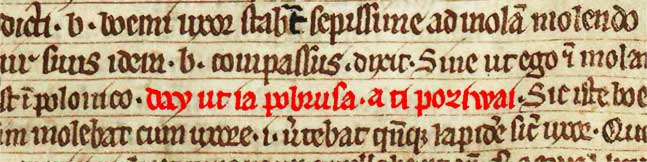 dicti · b · boemi uxor stabat sepissime ad molā molendo
suus idem · b · compassus · dixit · Sine ut ego ī mola
st ī polonico · day ut ia pobrusa · a ti poziwai · Sic iste boe
im molebat cum uxore · i · v̄tebat qn̄q lapidē sic̄ uxor · Quo